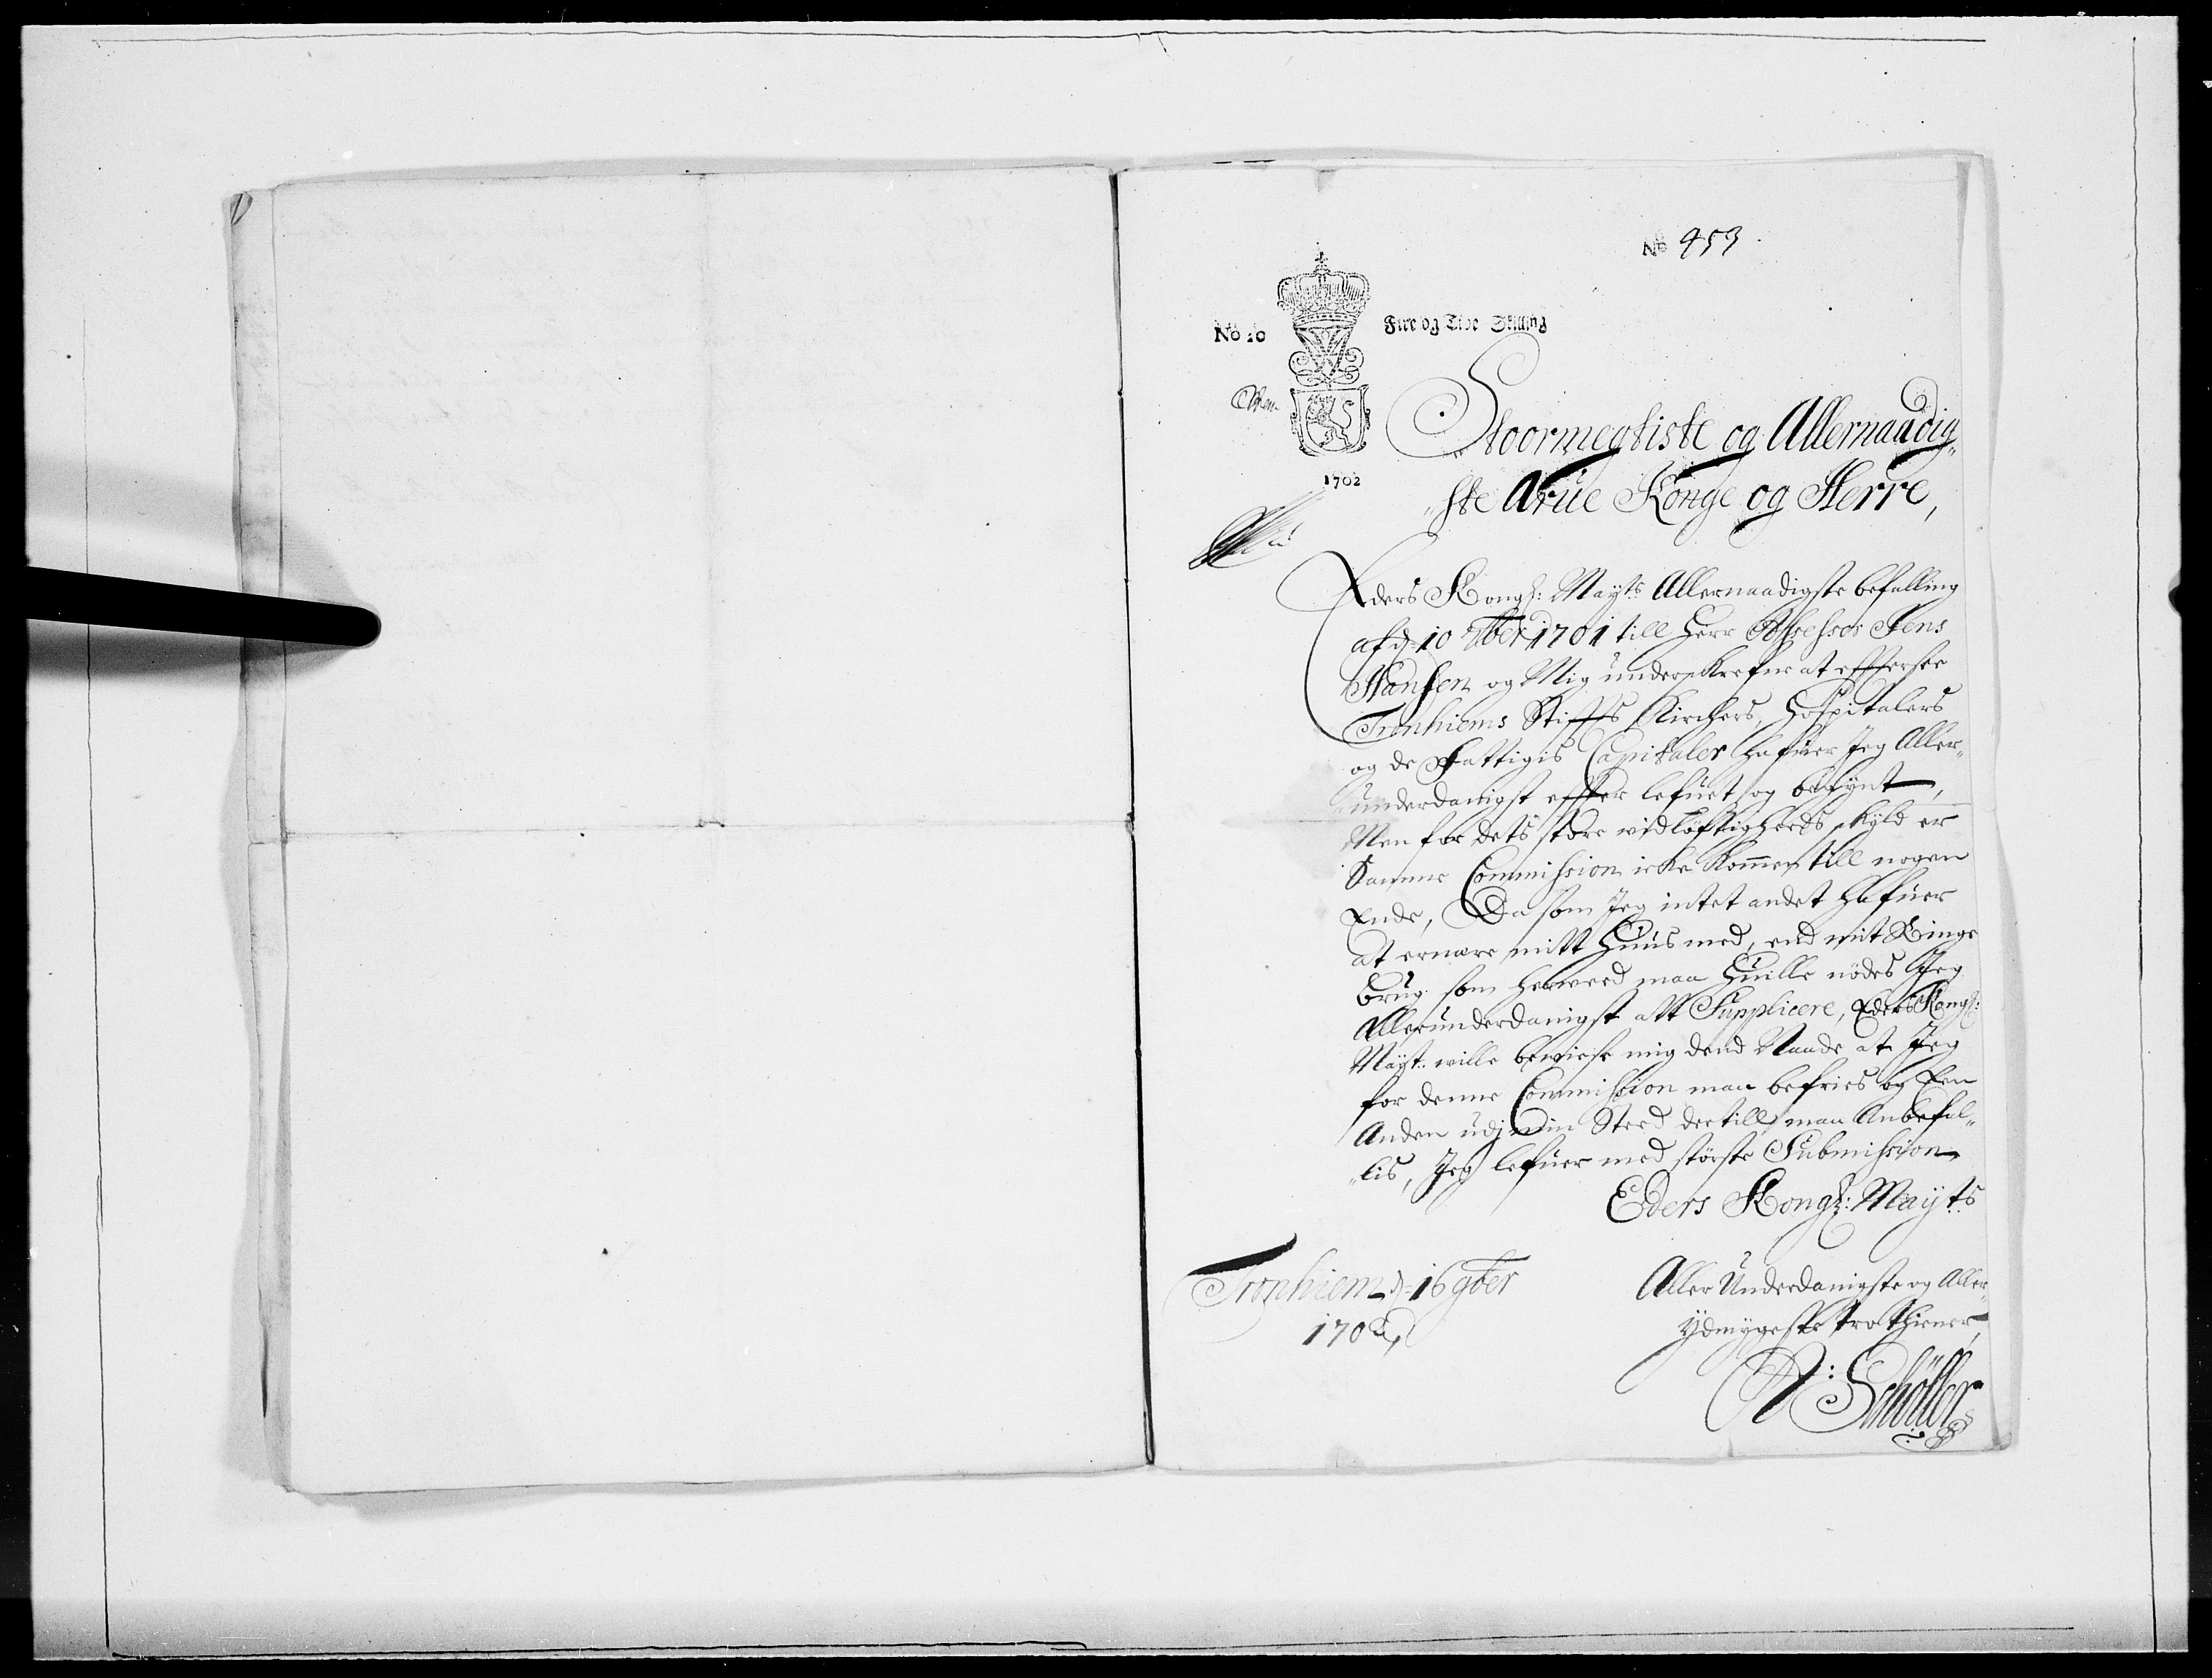 No 453.
No 10
Fire og Tive Skilling
1702
Stoormegtiste og Allernaadig„
„ste Arfue Konge og Herre,
Eders Kongl: Mayts Allernaadigste befalling
af d: 10 7ber 1701 till Herr Assessor Jens
Hansen og Mig underskrefne at effersee
Tronhiems Stiffts Kirchers, Hospitalers
og de Fattigis Capitaler hafuer Jeg Aller„
underdanigst effter lefuet og begynt,
Men for dets store vidløftigheds skyld er
Samme Commission icke kommen till nogen
Ende, Da som Jeg intet andet hafuer
at ernære mitt Huus med, end mit Ringe
brug som herved maa Huille nødes Jeg
Allerunderdanigst att Supplicere, Eders Kongl:
Mayt: wille bewiise mig dend Naade at Jeg
for denne Commission maa befries og Een
Anden udj min Sted dertill maa Anbefal„
„lis, Jeg lefuer med største Submission
Eders Kongl: Mayts
Tronhiem d: 16 9ber
1702
Aller Underdanigste og Aller„
Ydmygeste tro thiener
Schøller